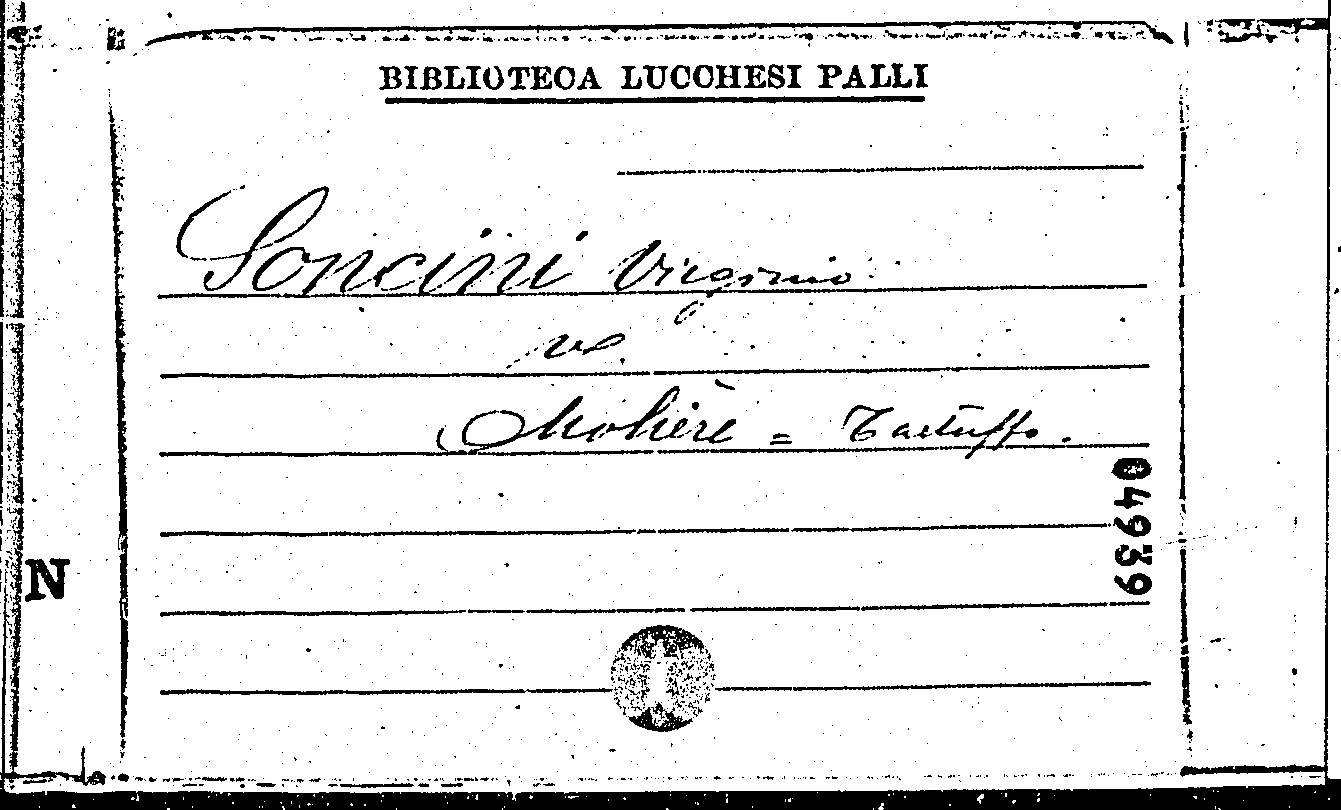 BIBLIOTECA LUCCHESI PALLI
Soncini Virginio
ve.
Molière = Tartuffo.
04939
N